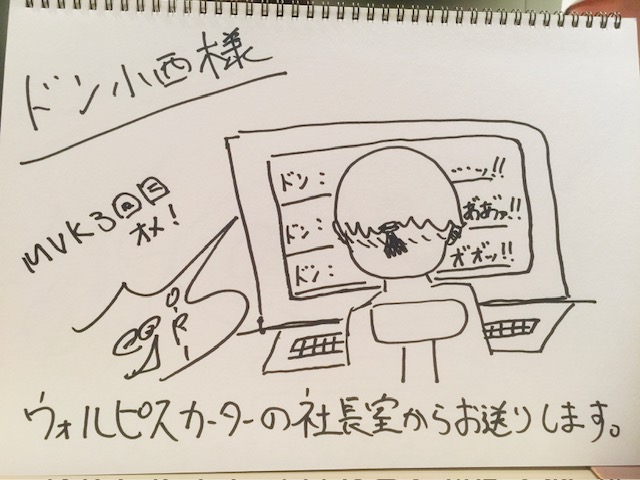 ドン小西様
MVK3回目
オメ!
ドン: ……ッ!!
ドン: あ゙あ゙ッ!!
ドン: ガガッ!!
ウォルピスカーターの社長室からお送りします。